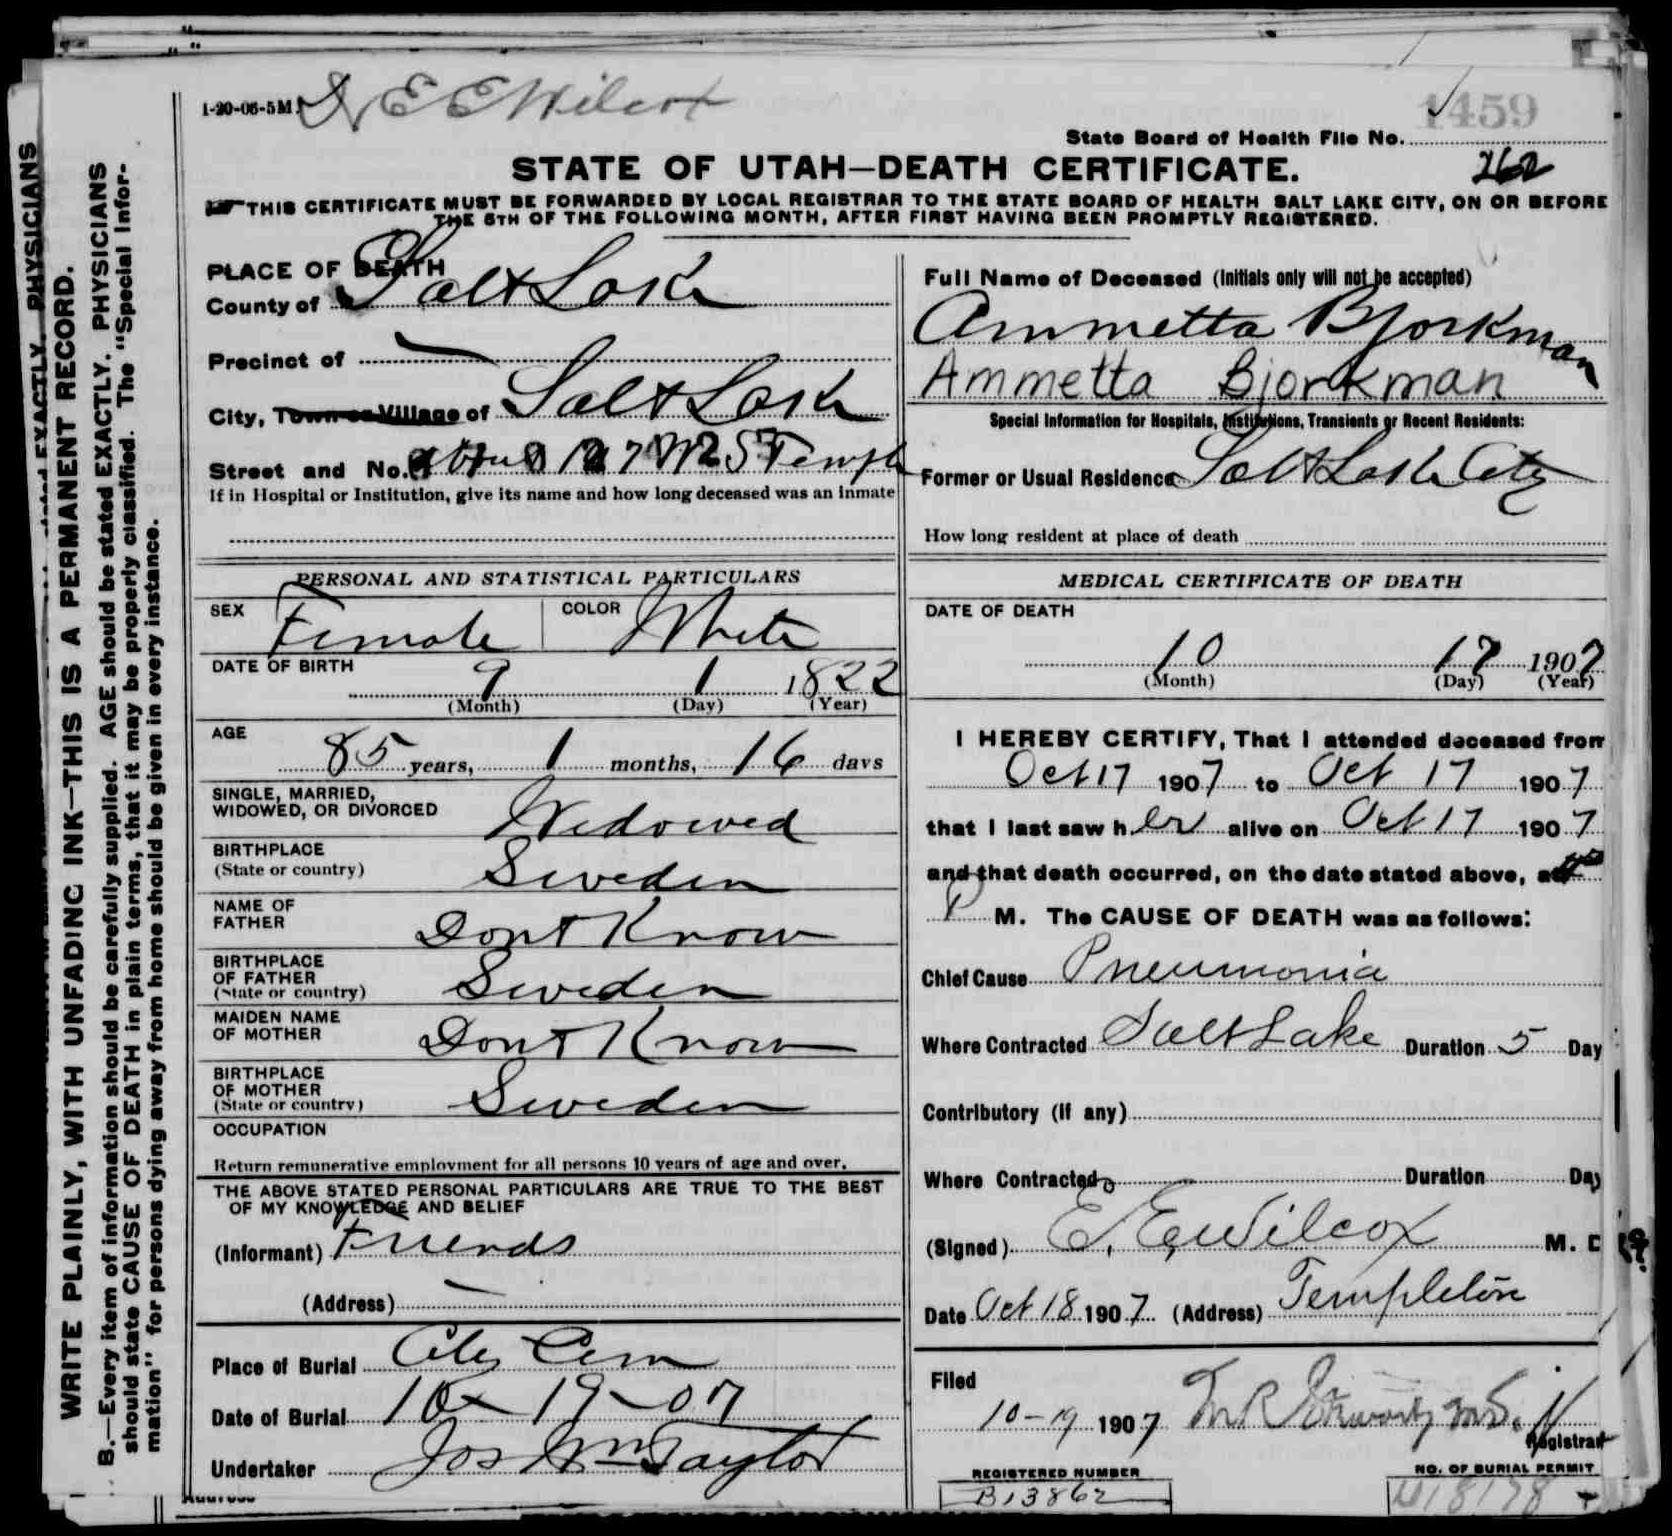 1-20-06-5M. Dr E E Wilcox
1459
State Board of Health File No.
STATE OF UTAH—DEATH CERTIFICATE.
262
THIS CERTIFICATE MUST BE FORWARDED BY LOCAL REGISTRAR TO THE STATE BOARD OF HEALTH SALT LAKE CITY, ON OR BEFORE
THE 5TH OF THE FOLLOWING MONTH, AFTER FIRST HAVING BEEN PROMPTLY REGISTERED.
PLACE OF DEATH
County of Salt Lake
Precinct of —
City, Town or Village of Salt Lake
Street and No. 127 W S Temple
If in Hospital or Institution, give its name and how long deceased was an inmate
PERSONAL AND STATISTICAL PARTICULARS
SEX Female COLOR White
DATE OF BIRTH 9 1 1822
(Month) (Day) (Year)
AGE
85 years, 1 months, 16 days
SINGLE, MARRIED,
WIDOWED, OR DIVORCED Widowed
BIRTHPLACE
(State or country) Sweden
NAME OF
FATHER Dont Know
BIRTHPLACE
OF FATHER
(State or country) Sweden
MAIDEN NAME
OF MOTHER Dont Know
BIRTHPLACE
OF MOTHER
(State or country) Sweden
OCCUPATION
Return remunerative employment for all persons 10 years of age and over.
THE ABOVE STATED PERSONAL PARTICULARS ARE TRUE TO THE BEST
OF MY KNOWLEDGE AND BELIEF
(Informant) Friends
(Address) —
Place of Burial City Cem
Date of Burial 10-19-07
Undertaker Jos Wm Taylor
Address
Full Name of Deceased (Initials only will not be accepted)
Ammetta Bjorkman
Ammetta Bjorkman
Special Information for Hospitals, Institutions, Transients or Recent Residents:
Former or Usual Residence Salt Lake City
How long resident at place of death
MEDICAL CERTIFICATE OF DEATH
DATE OF DEATH
10 17 1907
(Month) (Day) (Year)
I HEREBY CERTIFY, That I attended deceased from
Oct 17 1907 to Oct 17 1907
that I last saw her alive on Oct 17 1907
and that death occurred, on the date stated above, at
P M. The CAUSE OF DEATH was as follows:
Chief Cause Pneumonia
Where Contracted Salt Lake Duration 5 Day
Contributory (if any)
Where Contracted Duration Day
(Signed) E. E. Wilcox M. D
Date Oct 18 1907 (Address) Templeton
Filed
10-19 1907
Registrar
REGISTERED NUMBER
B13862
NO. OF BURIAL PERMIT
WRITE PLAINLY, WITH UNFADING INK—THIS IS A PERMANENT RECORD.
B.—Every item of information should be carefully supplied. AGE should be stated EXACTLY. PHYSICIANS
should state CAUSE OF DEATH in plain terms, that it may be properly classified. The "Special Infor-
mation" for persons dying away from home should be given in every instance.
EXACTLY. PHYSICIANS